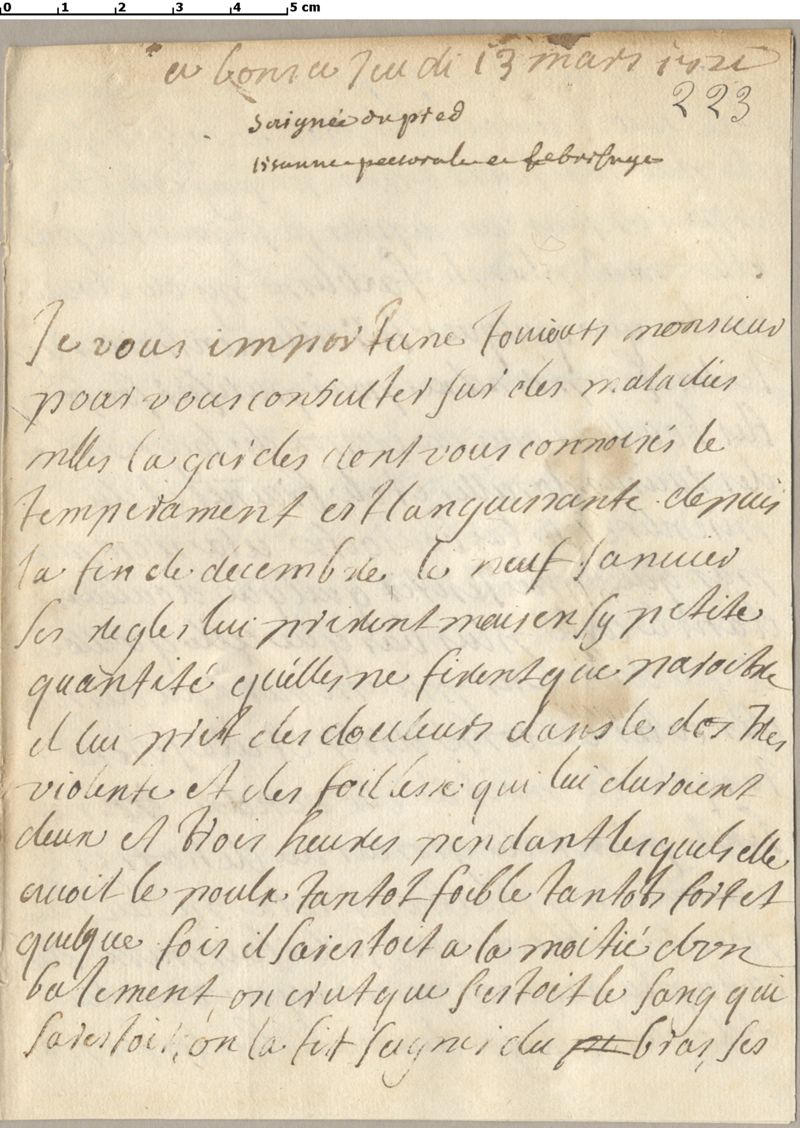 0 1 2 3 4 5 cm
a Lons ce Jeudi 13 mars
223
saignée du pied
tisanne pectorale et febrifuge
Je vous importune toujours monsieur
pour vous consulter sur des maladies
mlle la gardes dont vous connoisés le
temperament est languissante depuis
la fin de decembre le neuf Janvier
ses regles lui prirent mais en sy petite
quantité quelles ne firent que paroitre
il lui prit des douleurs dans le dos tres
violente et des foiblesse qui lui duroient
deux et trois heures pendant lesquels elle
avoit le poulx tantot foible tantots fort et
quelque fois il sarestoit a la moitié dvn
batement on crut que s'estoit le sang qui
sarestoit, on la fit saigner du bras, ses